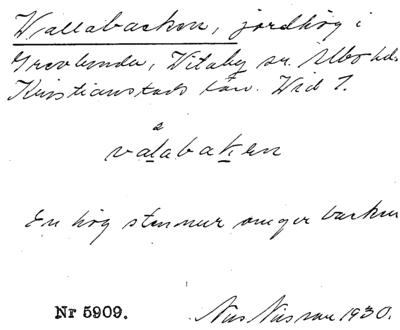 Wallabacken, jordhög i
Grevlunda, Vitaby sn. Albo hd.
Kristianstads län. Wid 7.
a
valabaken
En hög stenmur omger backen
Nr 5909. Nils Nilsson 1930.